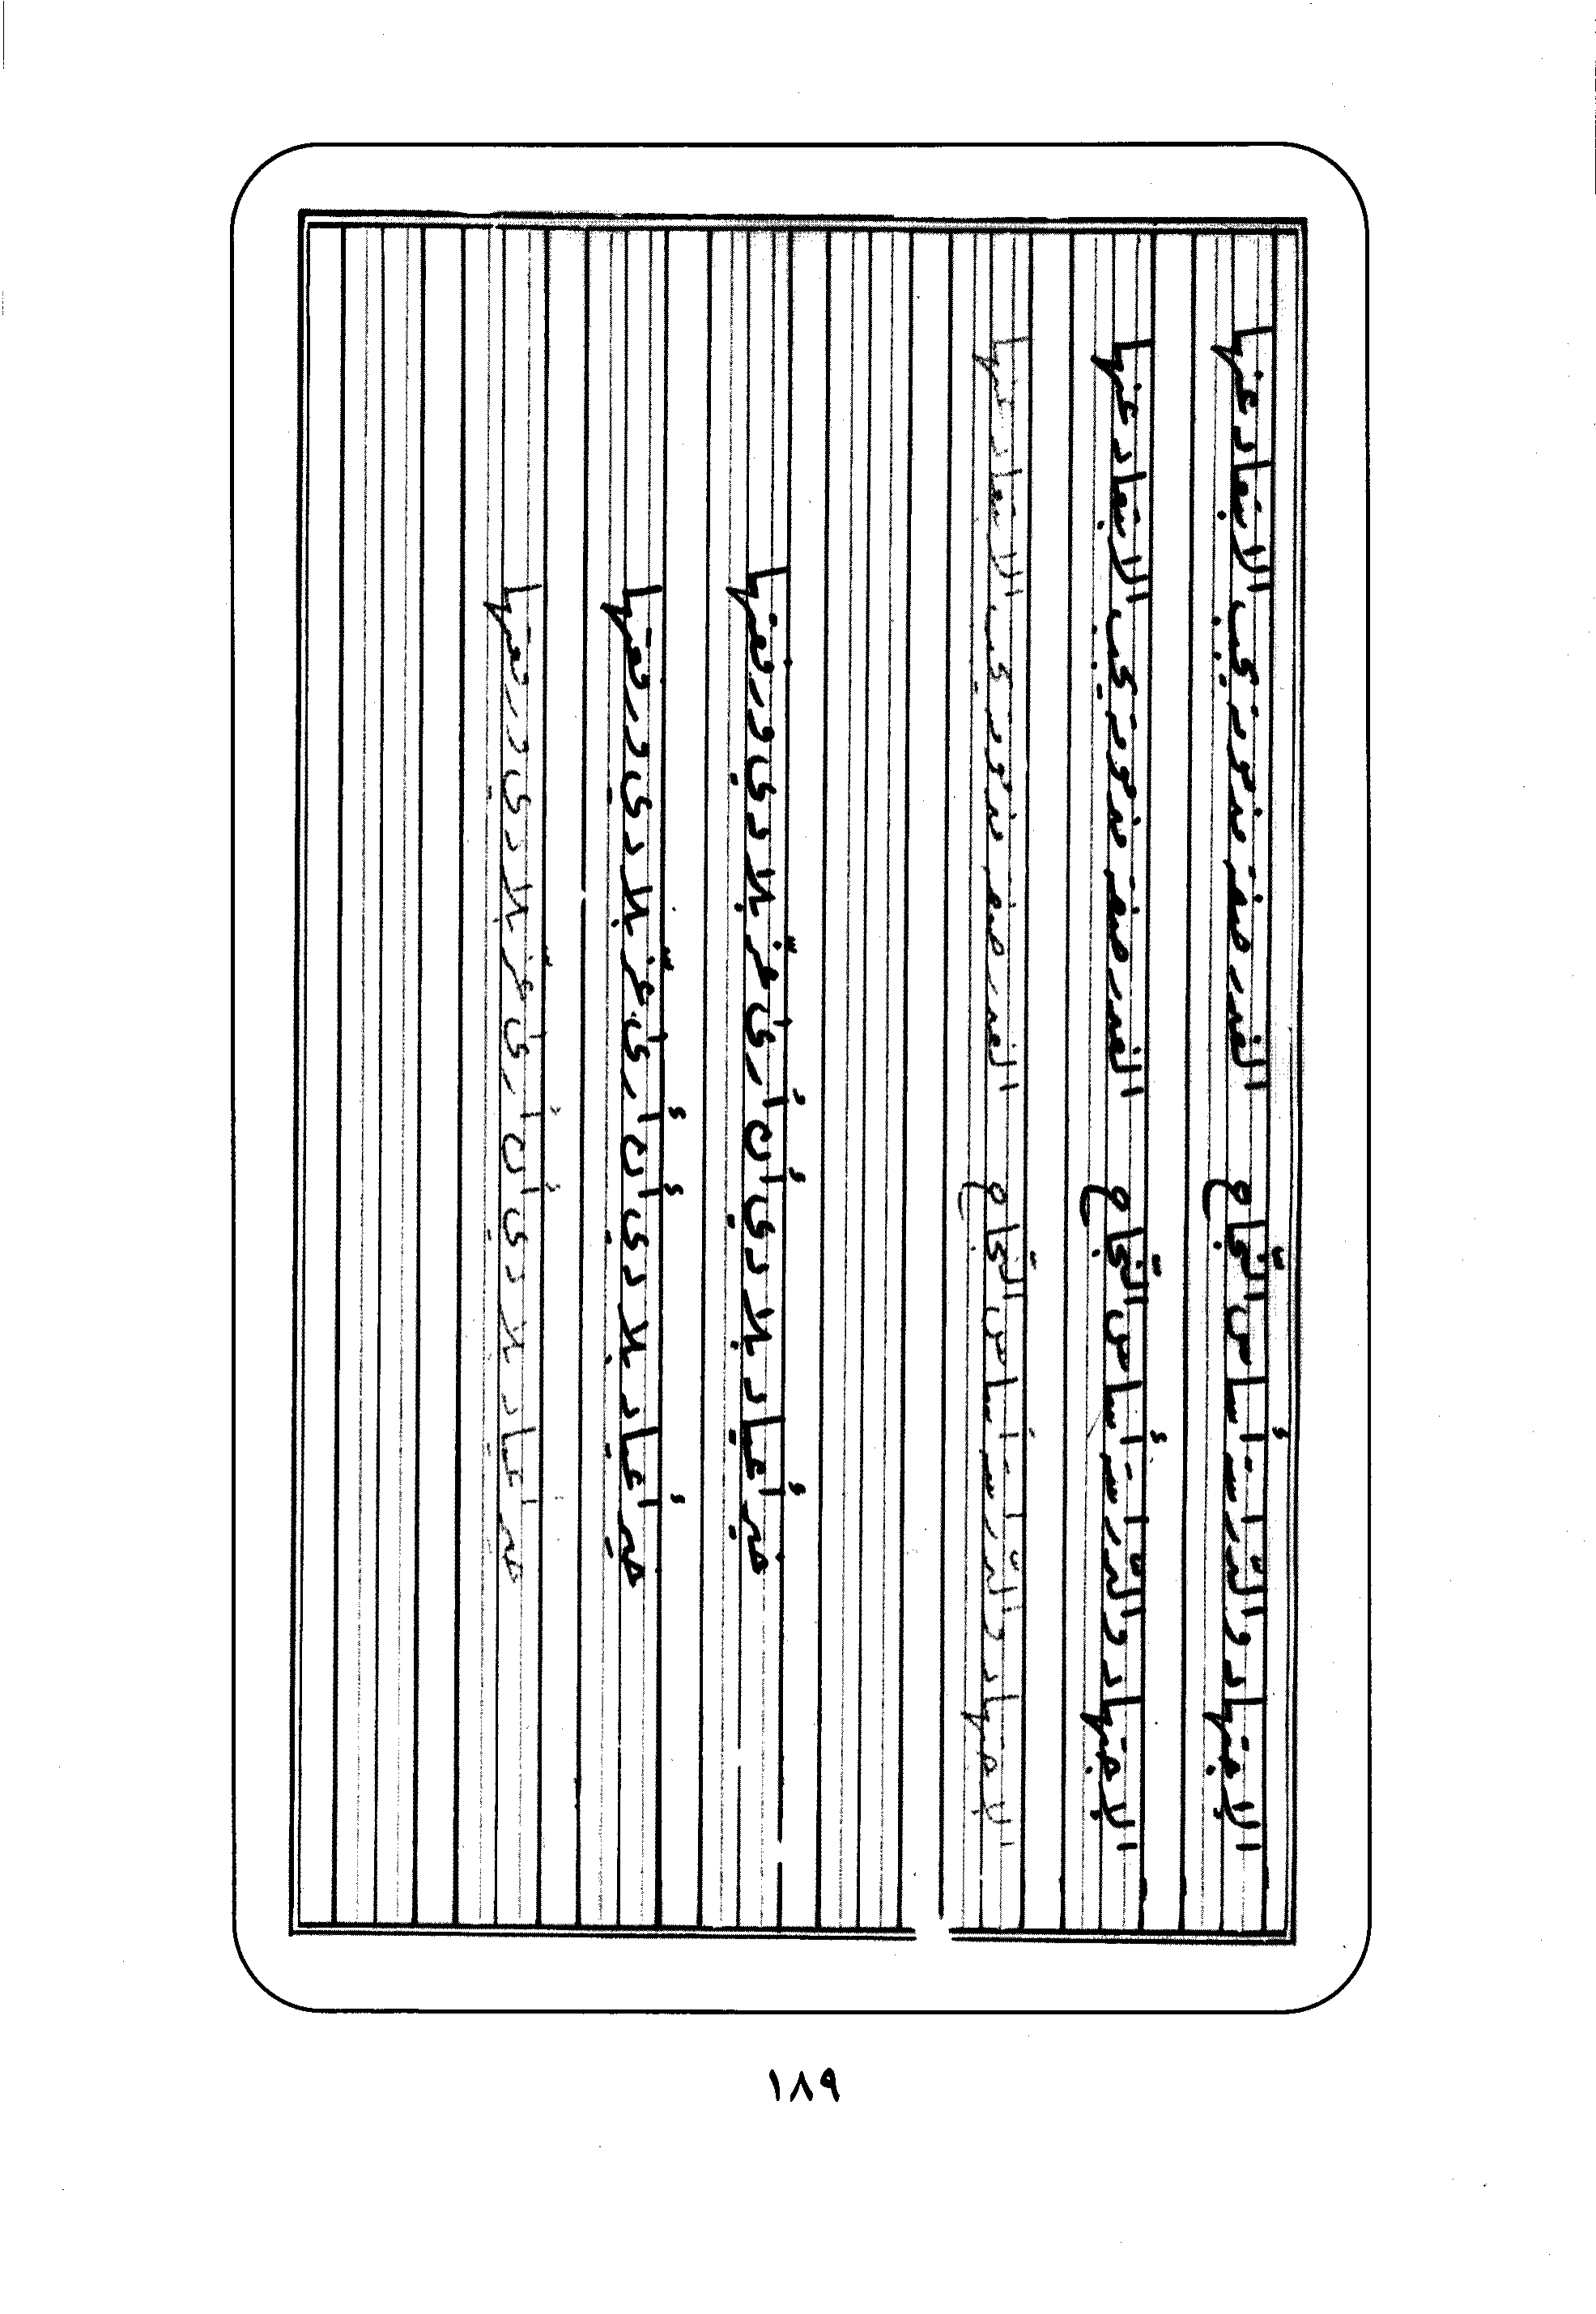 الإجتهاد والدّراسة أساس النّجاح الغدر صفة يجب الابتعاد عنها
الإجتهاد والدّراسة أساس النّجاح الغدر صفة يجب الابتعاد عنها
الاجتهاد والدّراسة أساس النّجاح الغدر صفة يجب الابتعاد عنها
خير أعياد بلادي أن أرى عزّ بلادي ورفعتها
خير أعياد بلادي أن أرى عزّ بلادي ورفعتها
خير أعياد بلادي أن أرى عزّ بلادي ورفعتها
١٨٩